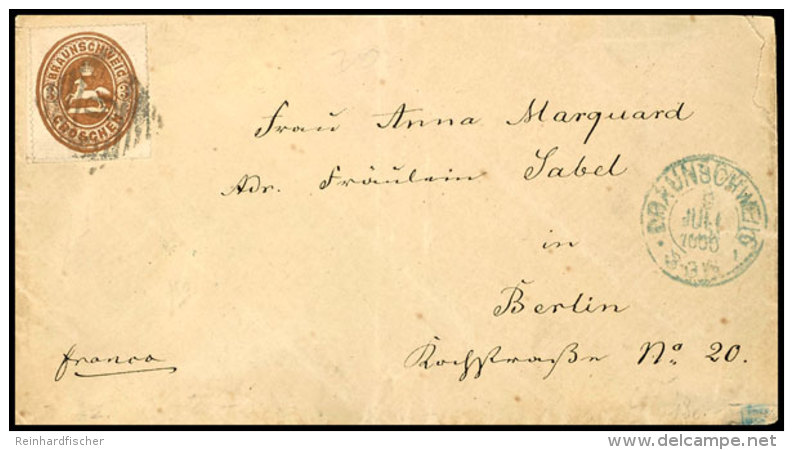 BRAUNSCHWEIG
3 3
GROSCHEN
Frau Anna Marquard
Adr. Fräulein Sabel
in
Berlin
Kochstraße No. 20.
franco
BRAUNSCHWEIG
JULI
Reinhardfischer
www.delcampe.net